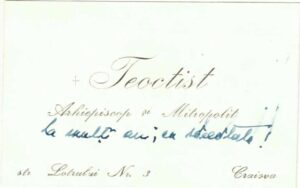 † Teoctist
Arhiepiscop și Mitropolit
la mulți ani, cu sănătate!
str. Lotrului Nr. 3 Craiova